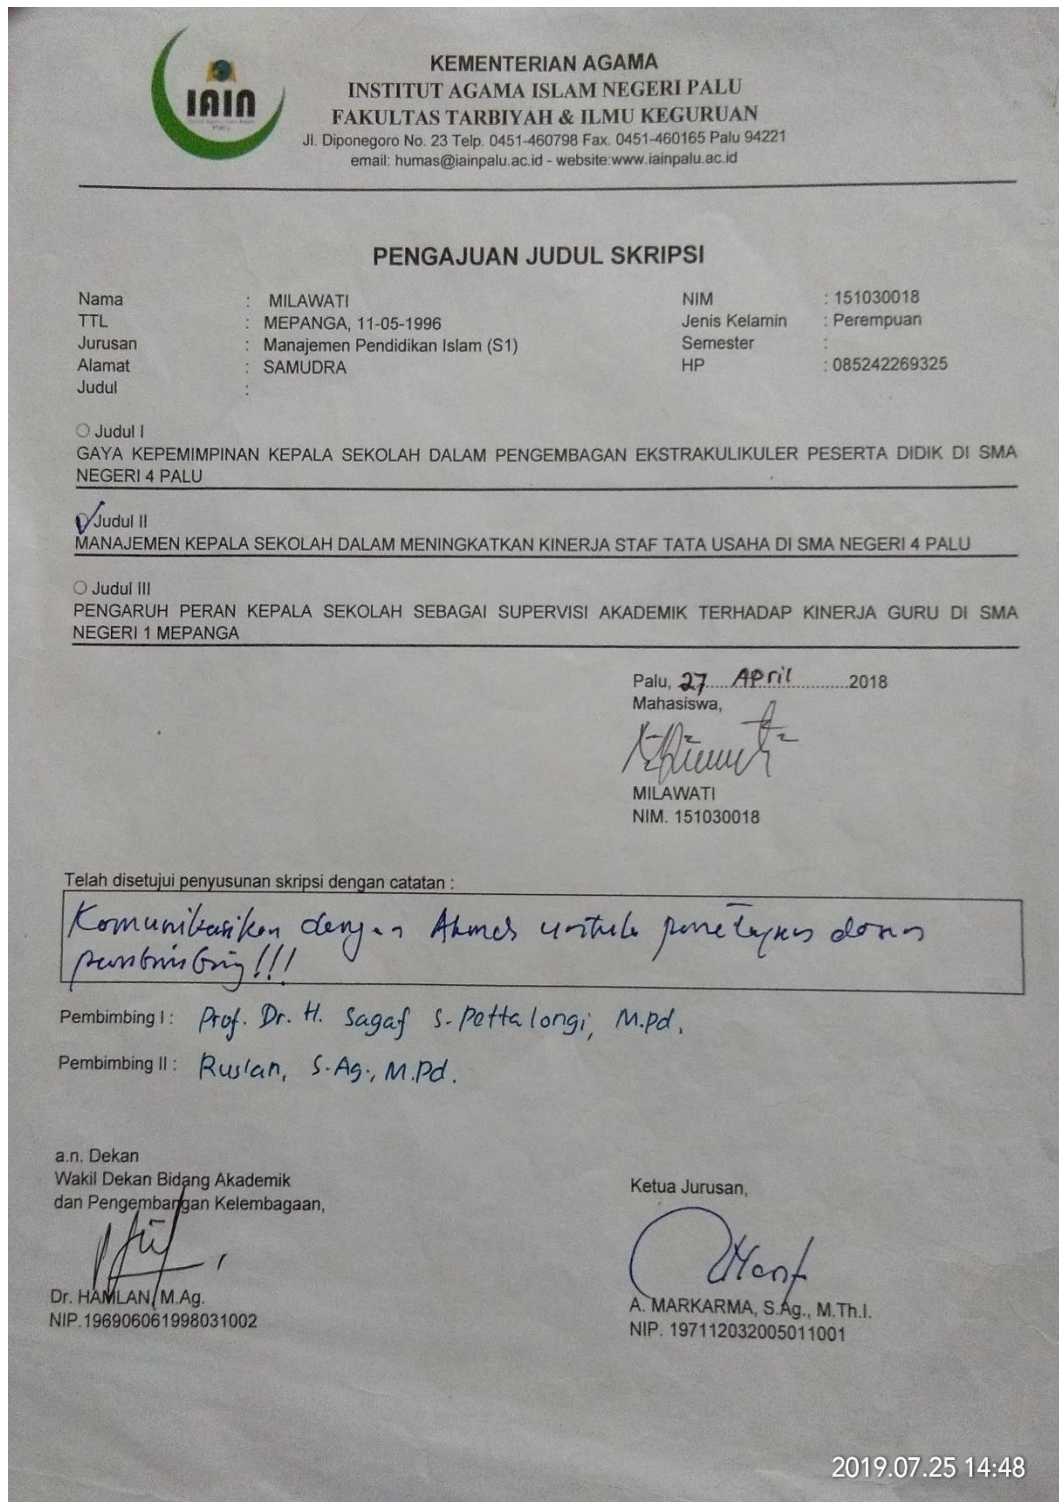 IAIN
KEMENTERIAN AGAMA
INSTITUT AGAMA ISLAM NEGERI PALU
FAKULTAS TARBIYAH & ILMU KEGURUAN
Jl. Diponegoro No. 23 Telp. 0451-460798 Fax. 0451-460165 Palu 94221
email: humas@iainpalu.ac.id - website:www.iainpalu.ac.id
PENGAJUAN JUDUL SKRIPSI
Nama : MILAWATI NIM : 151030018
TTL : MEPANGA, 11-05-1996 Jenis Kelamin : Perempuan
Jurusan : Manajemen Pendidikan Islam (S1) Semester :
Alamat : SAMUDRA HP : 085242269325
Judul :
Judul I
GAYA KEPEMIMPINAN KEPALA SEKOLAH DALAM PENGEMBAGAN EKSTRAKULIKULER PESERTA DIDIK DI SMA
NEGERI 4 PALU
Judul II
MANAJEMEN KEPALA SEKOLAH DALAM MENINGKATKAN KINERJA STAF TATA USAHA DI SMA NEGERI 4 PALU
Judul III
PENGARUH PERAN KEPALA SEKOLAH SEBAGAI SUPERVISI AKADEMIK TERHADAP KINERJA GURU DI SMA
NEGERI 1 MEPANGA
Palu, 27 April 2018
Mahasiswa,
MILAWATI
NIM. 151030018
Telah disetujui penyusunan skripsi dengan catatan :
Komunikasikan dengan untuk dosen
pembimbing!!!
Pembimbing I : Prof. Dr. H. Sagaf S. Pettalongi, M.Pd.
Pembimbing II : Ruslan, S.Ag., M.Pd.
a.n. Dekan
Wakil Dekan Bidang Akademik
dan Pengembangan Kelembagaan,
Dr. HAMLAN, M.Ag.
NIP.196906061998031002
Ketua Jurusan,
A. MARKARMA, S.Ag., M.Th.I.
NIP. 197112032005011001
2019.07.25 14:48